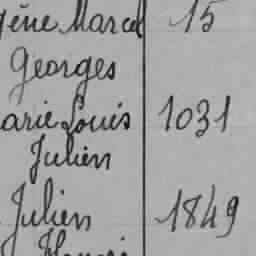 gène Marcel 15
Georges
arie Louis 1031
Julien
Julien 1849